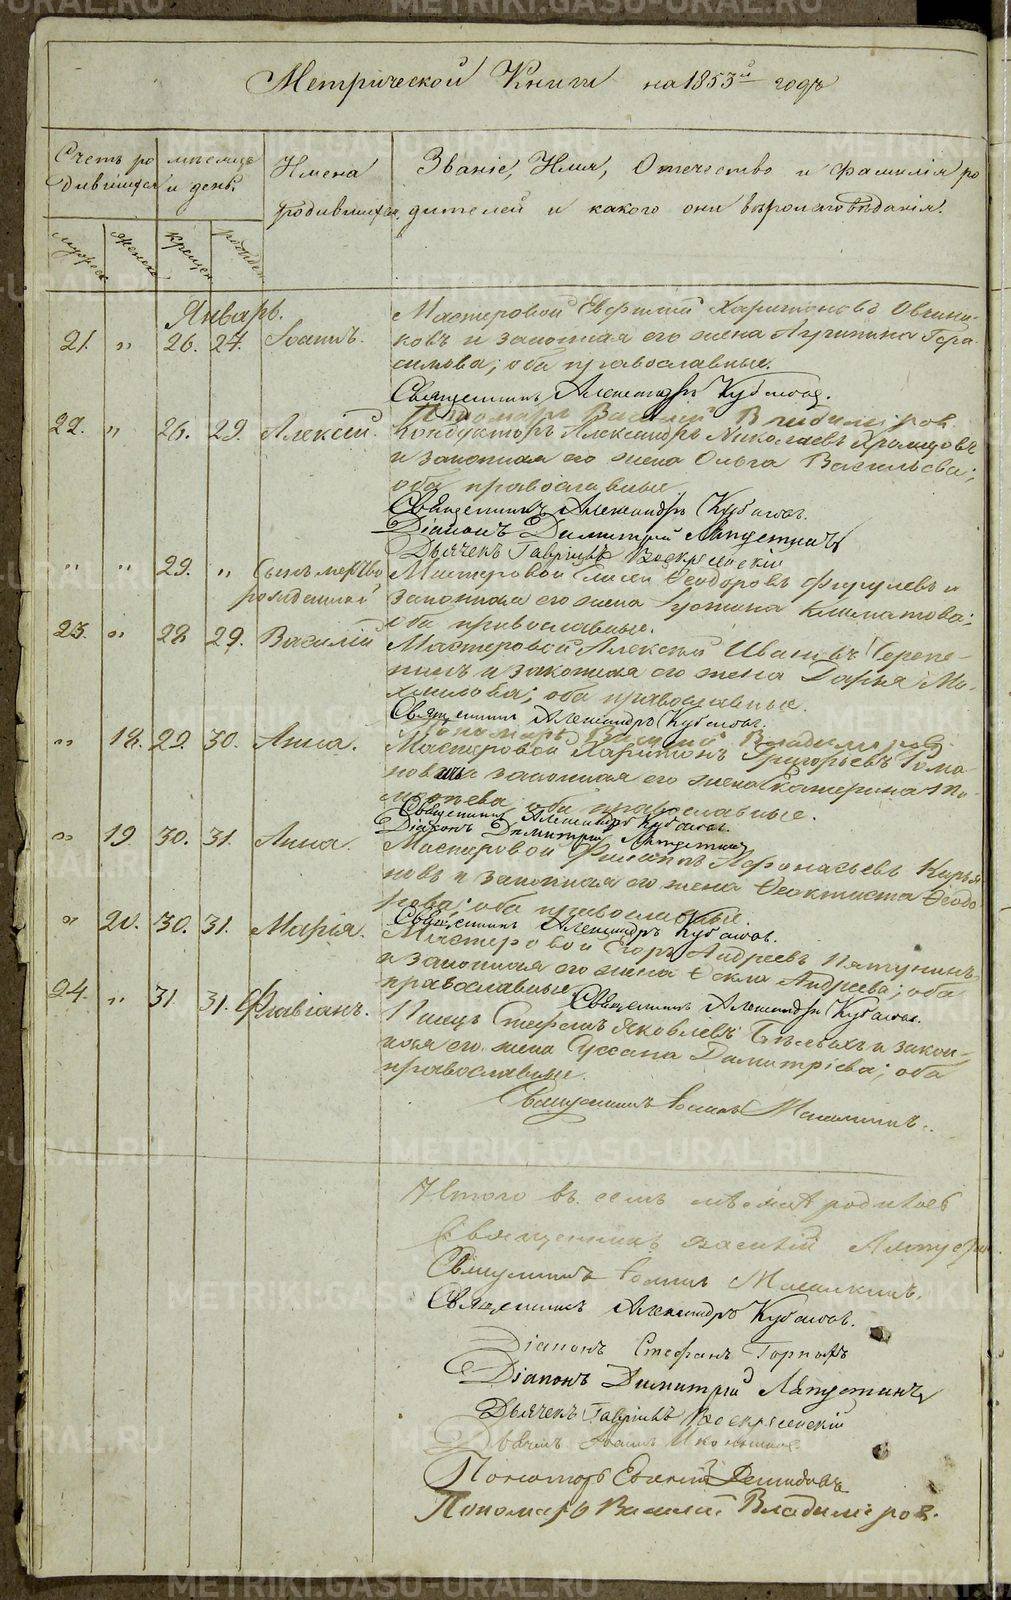 Метрической Книги на 1853й годъ
Счетъ ро
дившихся
мѣсяцъ
и день.
Имена
родившихся.
Званіе, Имя, Отечество и фамилія ро
дителей и какого они вѣроисповѣданія.
мужеск женска крещен рожден
Январь.
21. " 26. 27. Іоаннъ.
Мастеровой Евфимій Харитоновъ
ковъ и законная его жена Агрипина Гера-
симова; оба православные.
Священникъ Александръ Кубасов.
Пономарь Василій Владимиров.
22. " 26. 29. Алексій.
Кондукторъ Александръ Николаевъ
и законная его жена Ольга Васильева;
оба православные
Священникъ Александръ Кубасов.
Діаконъ Димитрий Ляпустинъ
Дьячекъ Гавріилъ Воскресенскій
" " 29. " Сынъ мертво
рожденной
Мастеровой Елисей Ѳеодоровъ и
законная его жена Устина Климатова;
оба православные.
23. " 28 29. Василій
Мастеровой Алексѣй Ивановъ Черепа-
нинъ и законная его жена Дарья Ма-
хаилова; оба православные.
Священникъ Александръ Кубасов.
Пономарь Василий Владимиров
" 18. 29. 30. Анна.
Мастеровой Харитонъ Григорьевъ Рома
новъ и законная его жена Екатерина
оба православные.
Священникъ Александръ Кубасов.
Діаконъ Димитрий Ляпустинъ
" 19 30. 31. Анна.
Мастеровой Филатъ Афонасьевъ Курья
новъ и законная его жена Ѳеоктиста Ѳеодо
рова; оба православные.
Священникъ Александръ Кубасов.
" 20. 30. 31. Марія.
Мастеровой Егоръ Андреевъ Пятунинъ
и законная его жена Ѳекла Андреева; оба
православные
Священникъ Александръ Кубасов.
24. " 31 31. Флавіанъ.
Писецъ Стефанъ Яковлевъ и закон-
ная его жена Сусана Димитріева; оба
православные.
Священникъ Іоаннъ
Итого въ семъ мѣсяцѣ родилось
Священникъ Василій
Священникъ Іоаннъ
Священникъ Александръ Кубасов.
Діаконъ Стефанъ Горныхъ
Діаконъ Димитрий Ляпустинъ
Дьячекъ Гавріилъ Воскресенскій
Дьячекъ Іоаннъ
Пономарь Евгений Демидовъ
Пономарь Василий Владимиров.
METRIKI.GASO-URAL.RU